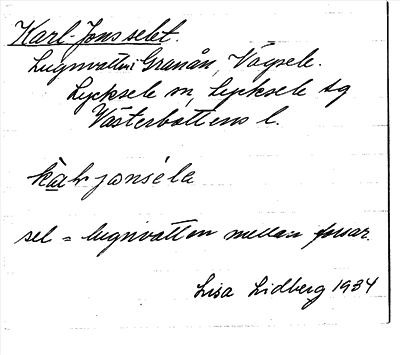 Karl-Jonsselet.
Lugnvatten i Granån, Vägsele.
Lycksele sn, Lycksele tg
Västerbottens l.
kal jonséla
sel = lugnvatten mellan forsar.
Lisa Lidberg 1934